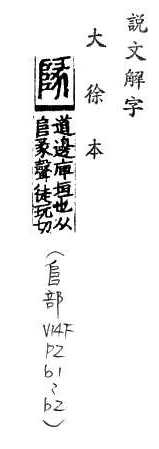 説文解字
大徐本
道邊庳垣也从
𨸏彖聲徒玩切
(𨸏部
V14下
P2
b1、
b2)